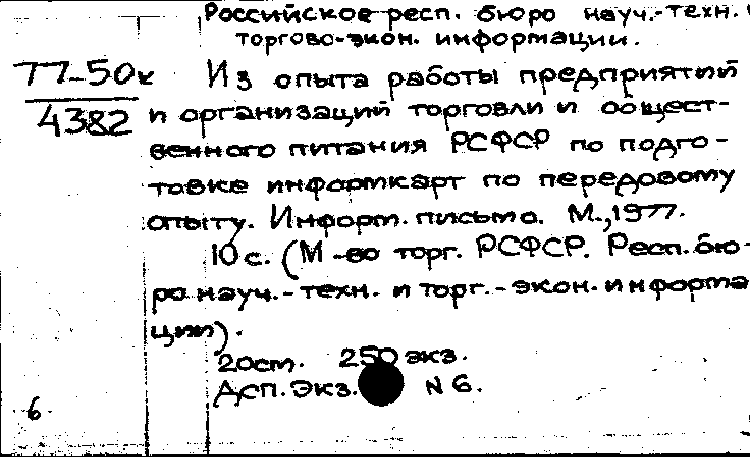 Российское респ. бюро науч.-техн. и
торгово-экон. информации.
Т7-50к
4382
Из опыта работы предприятий
и организаций торговли и общест-
венного питания РСФСР по подго-
товке информкарт по передовому
опыту. Информ. письмо. М., 1977.
10 с. (М-во торг. РСФСР. Респ. бю-
ро науч.-техн. и торг.-экон. информа
ции).
20 см. 250 экз.
ДСП. Экз. N 6.
6